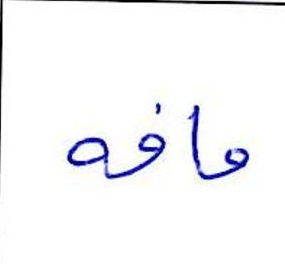 مافه